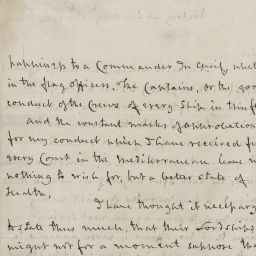 happiness to a Commander In Chief, whet
in the flag officers, the Captains, or the goo
conduct of the Crews of every Ship in this f
and the constant marks of approbation
for my conduct which I have received f
every Court in the Mediterranean leave m
nothing to wish for, but a better state of
Health.
I have thought it necessary
to State thus much, that their Lordships
might not for a moment suppose tha